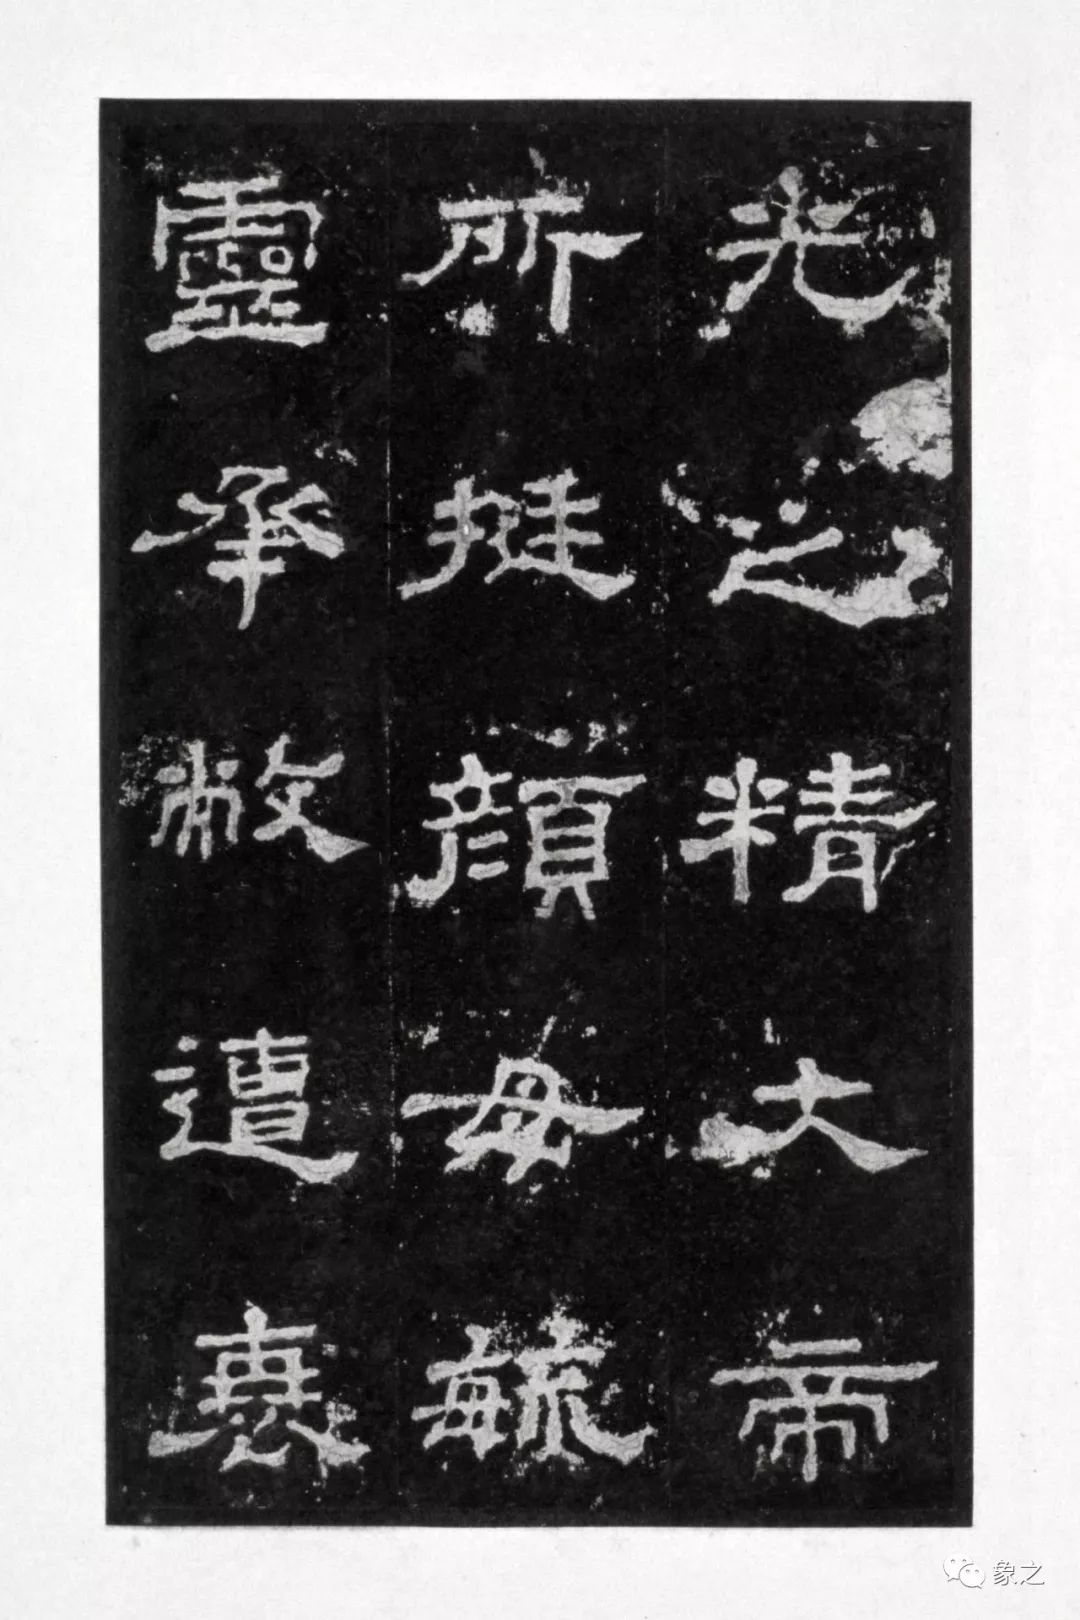 光之精大帝
所挺顏母毓
靈承敝遭衰
象之